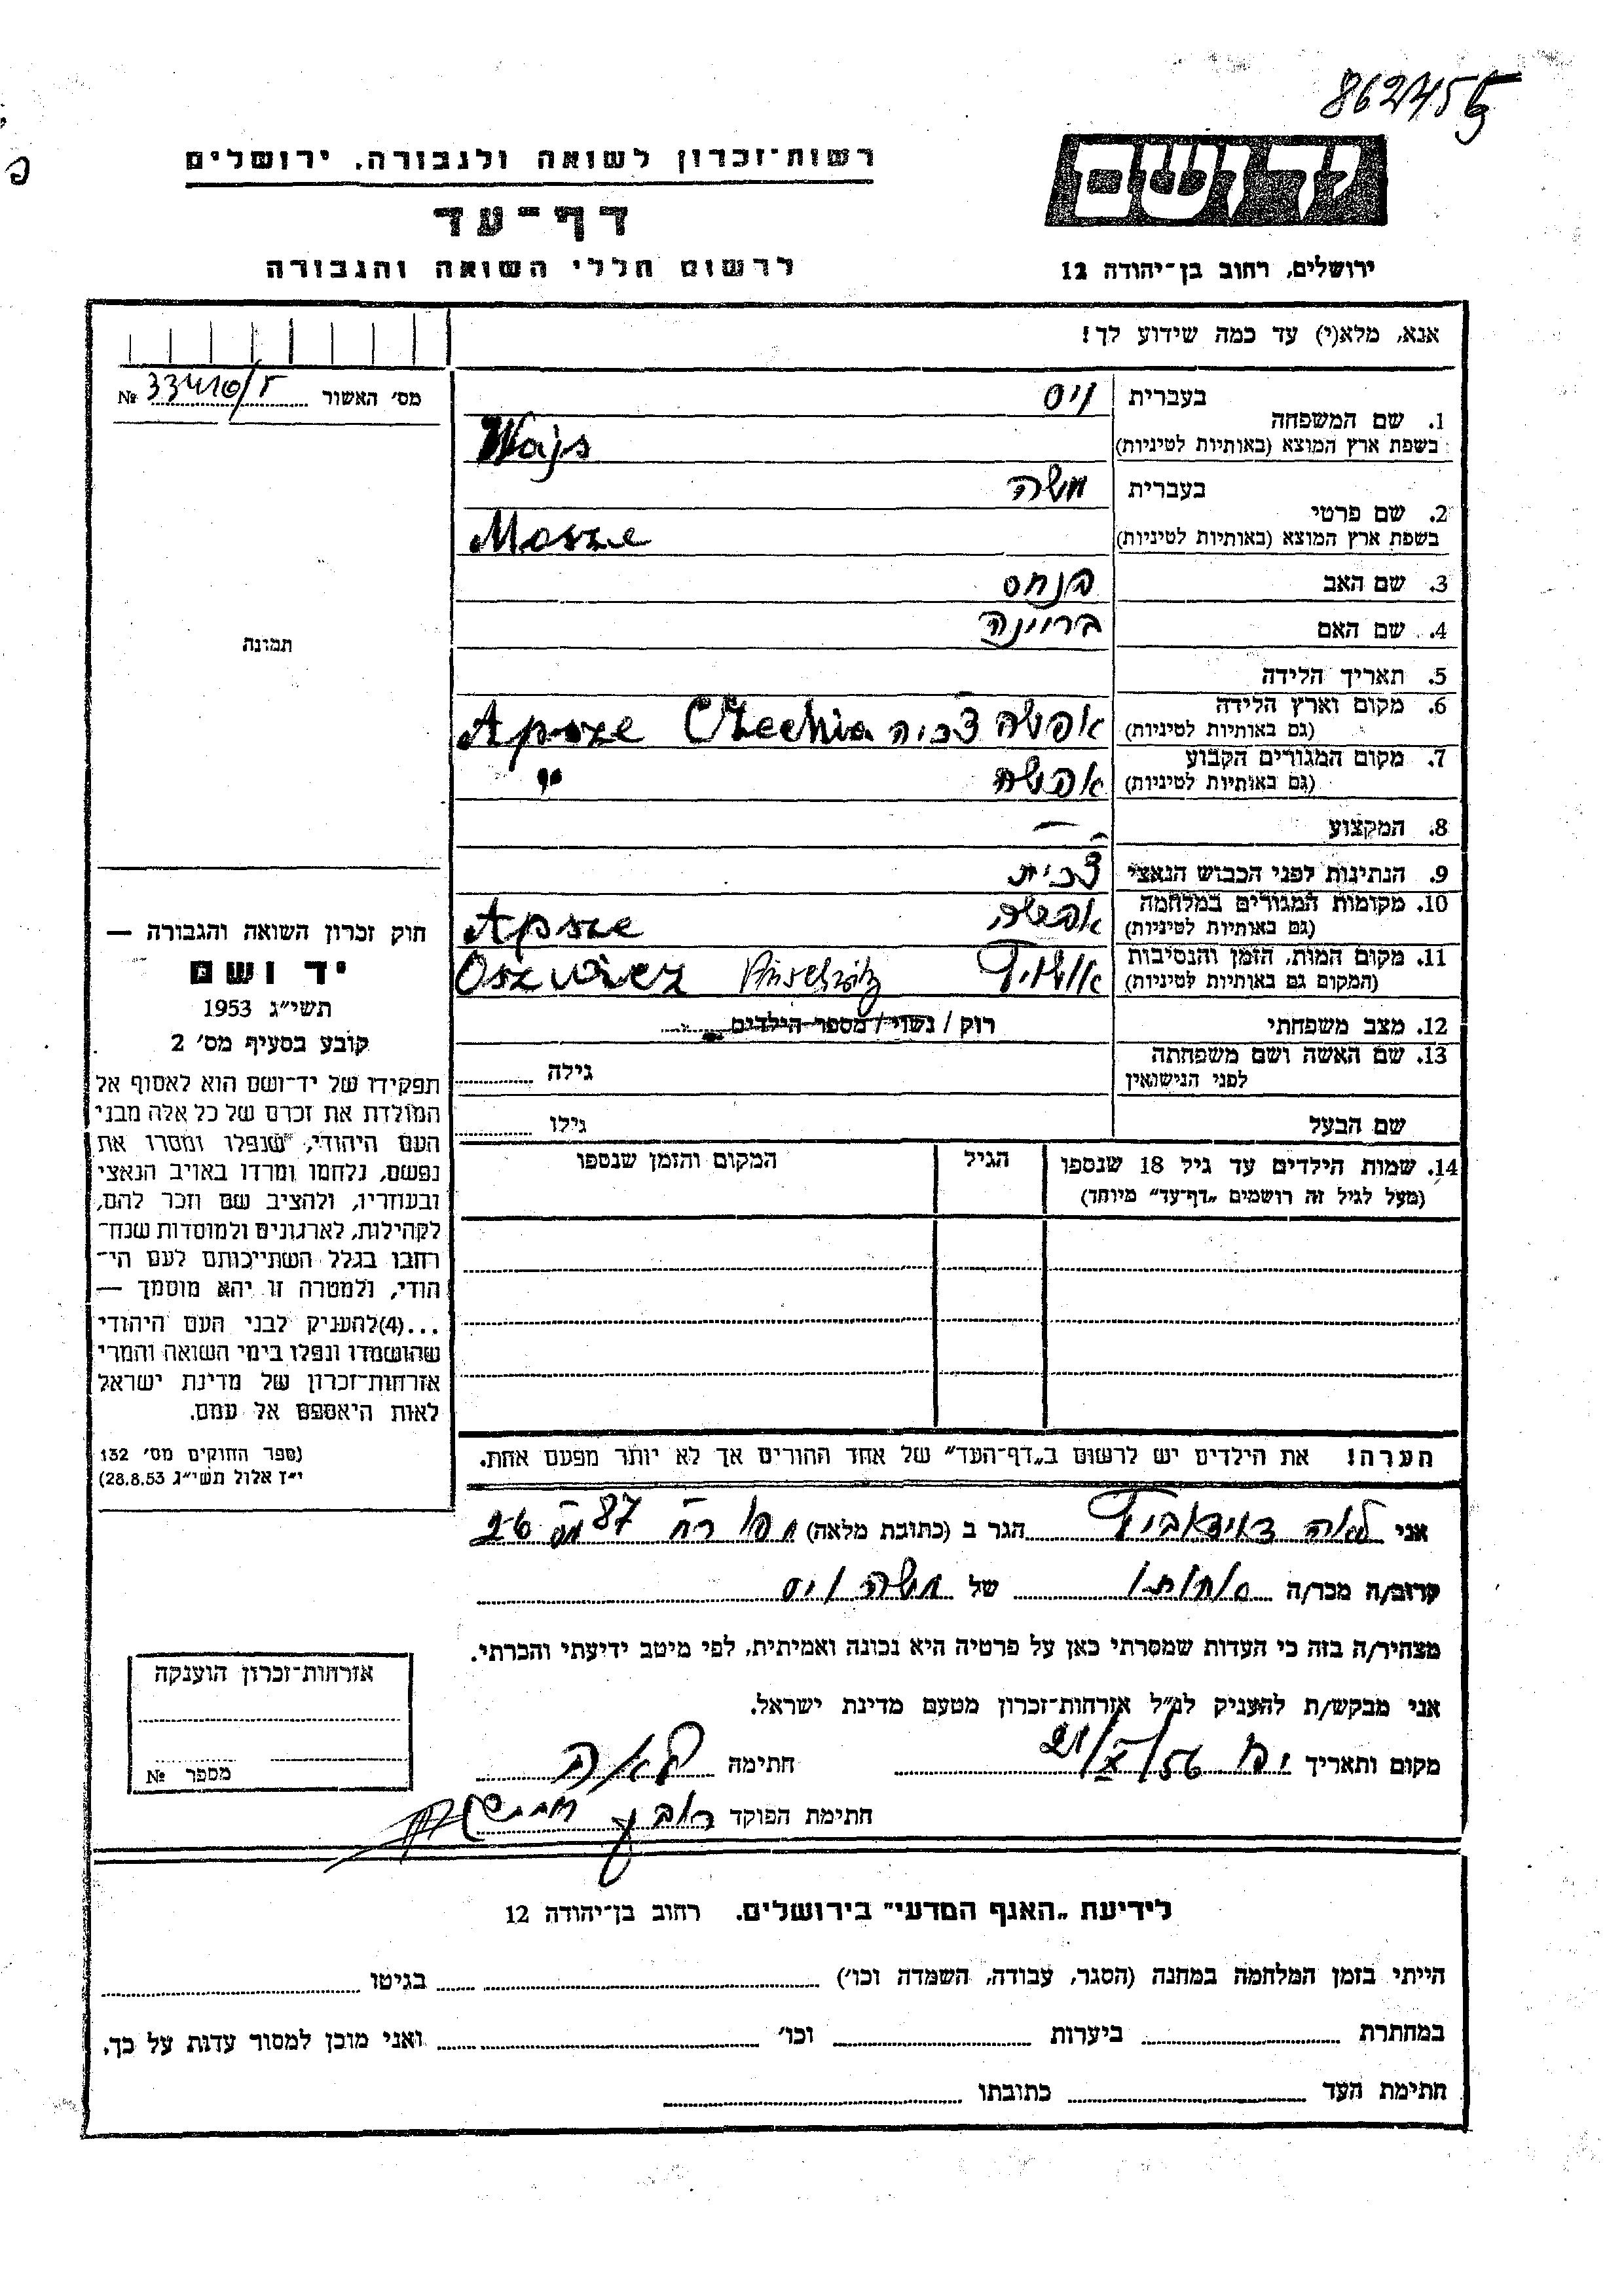 862745
רשות־זכרון לשואה ולגבורה, ירושלים
דף־עד
לרשום חללי השואה והגבורה
יד ושם
ירושלים, רחוב בן־יהודה 12
אנא, מלא(י) עד כמה שידוע לך!
מס׳ האשור № 33410/ר
תמונה
1. שם המשפחה
בעברית ויס
בשפת ארץ המוצא (באותיות לטיניות) Wajs
2. שם פרטי
בעברית משה
בשפת ארץ המוצא (באותיות לטיניות) Mosze
3. שם האב פנחס
4. שם האם בריינה
5. תאריך הלידה
6. מקום וארץ הלידה
(גם באותיות לטיניות) אפשה צכיה Czechia Apsze
7. מקום המגורים הקבוע
(גם באותיות לטיניות) אפשה "
8. המקצוע —
9. הנתינות לפני הכבוש הנאצי צכית
10. מקומות המגורים במלחמה
(גם באותיות לטיניות) אפשה Apsze
11. מקום המות, הזמן והנסיבות
(המקום גם באותיות לטיניות) אושויץ Auschwitz Oszwiez
12. מצב משפחתי רוק / נשוי / מספר הילדים
13. שם האשה ושם משפחתה
לפני הנישואין גילה
שם הבעל גילו
14. שמות הילדים עד גיל 18 שנספו
(מעל לגיל זה רושמים „דף־עד״ מיוחד)
הגיל
המקום והזמן שנספו
הערה! את הילדים יש לרשום ב„דף־העד״ של אחד ההורים אך לא יותר מפעם אחת.
חוק זכרון השואה והגבורה —
יד ושם
תשי״ג 1953
קובע בסעיף מס׳ 2
תפקידו של יד־ושם הוא לאסוף אל
המולדת את זכרם של כל אלה מבני
העם היהודי, שנפלו ומסרו את
נפשם, נלחמו ומרדו באויב הנאצי
ובעוזריו, ולהציב שם וזכר להם,
לקהילות, לארגונים ולמוסדות שנח־
רחבו בגלל השתייכותם לעם הי־
הודי, ולמטרה זו יהא מוסמך —
...(4)להעניק לבני העם היהודי
שהושמדו ונפלו בימי השואה והמרי
אזרחות־זכרון של מדינת ישראל
לאות היאספם אל עמם.
(ספר החוקים מס׳ 132
י״ז אלול תשי״ג 28.8.53)
אני לאה דוידאביץ הגר ב (כתובת מלאה) יפו רח 87 מס 26
קרוב/ה מכר/ה אחותו של משה ויס
מצהיר/ה בזה כי העדות שמסרתי כאן על פרטיה היא נכונה ואמיתית, לפי מיטב ידיעתי והכרתי.
אני מבקש/ת להעניק לנ״ל אזרחות־זכרון מטעם מדינת ישראל.
מקום ותאריך יפו 21/X/56 חתימה לאה
חתימת הפוקד
אזרחות־זכרון הוענקה
מספר №
לידיעת „האגף המדעי״ בירושלים. רחוב בן־יהודה 12
הייתי בזמן המלחמה במחנה (הסגר, עבודה, השמדה וכו׳) בגיטו
במחתרת ביערות וכו׳ ואני מוכן למסור עדות על כך.
חתימת העד כתובתו